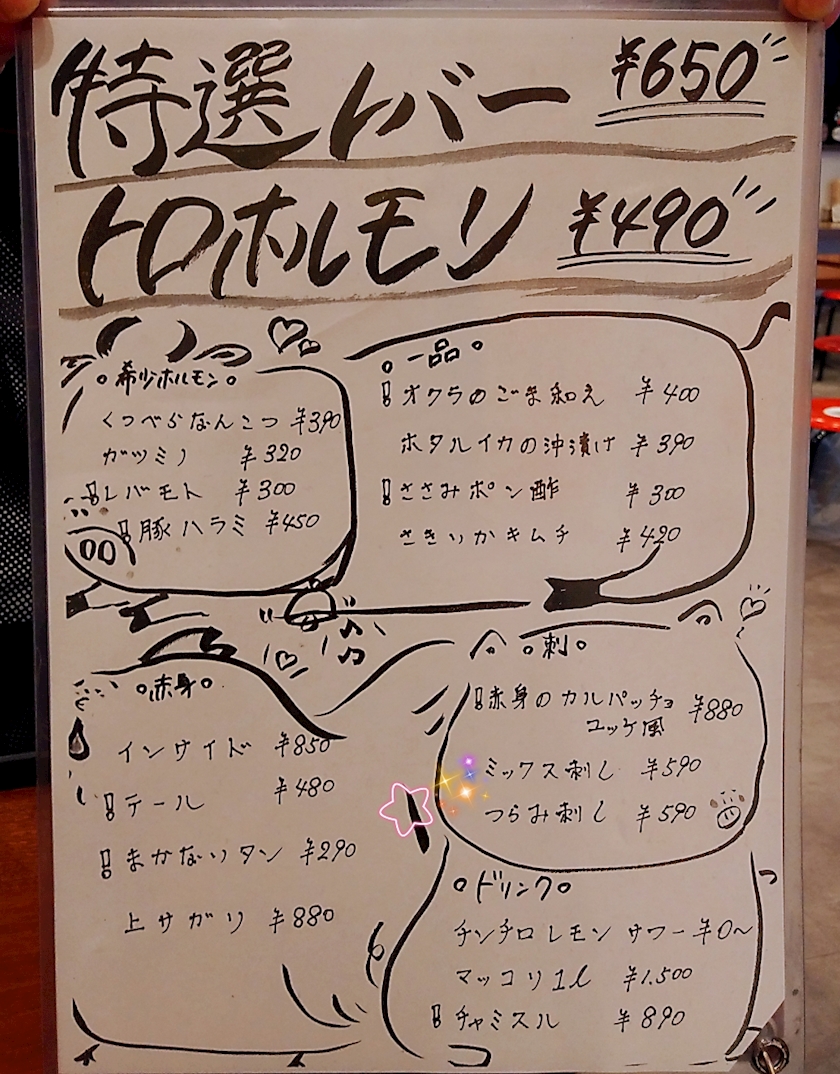 特選レバー ¥650
トロホルモン ¥490
希少ホルモン
くつべらなんこつ ¥390
ガツミノ ¥320
レバモト ¥300
豚ハラミ ¥450
一品
オクラのごま和え ¥400
ホタルイカの沖漬け ¥390
ささみポン酢 ¥300
さきいかキムチ ¥420
赤身
インサイド ¥850
テール ¥480
まかないタン ¥290
上サガリ ¥880
刺
赤身のカルパッチョ ¥880
ユッケ風
ミックス刺し ¥590
つらみ刺し ¥590
ドリンク
チンチロレモンサワー ¥0〜
マッコリ1l ¥1.500
チャミスル ¥890